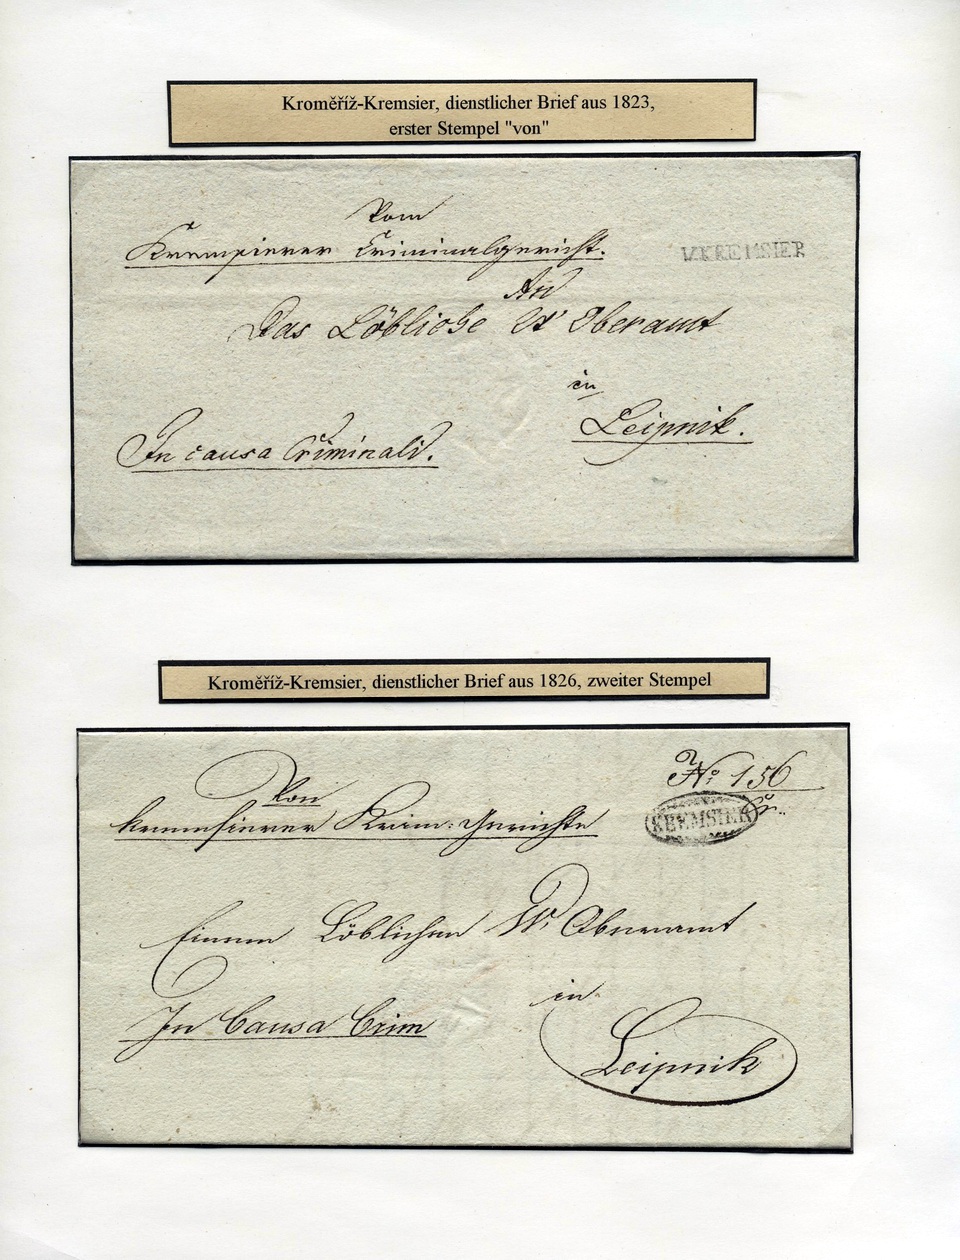 Kroměříž-Kremsier, dienstlicher Brief aus 1823,
erster Stempel "von"
Vom
Kremsierer Criminalgericht.
V.KREMSIER
An
Das Löbliche W Oberamt
in
Leipnik.
In causa Criminali.
Kroměříž-Kremsier, dienstlicher Brief aus 1826, zweiter Stempel
No. 156
Von
Kremsierer Krim: Gerichte
KREMSIER
Einem Löblichen W. Oberamt
in
In Causa Crim
Leipnik